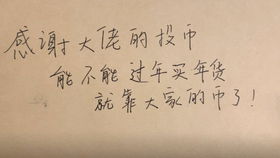 感谢大佬的投币
能不能过年买年货
就靠大家的币了！